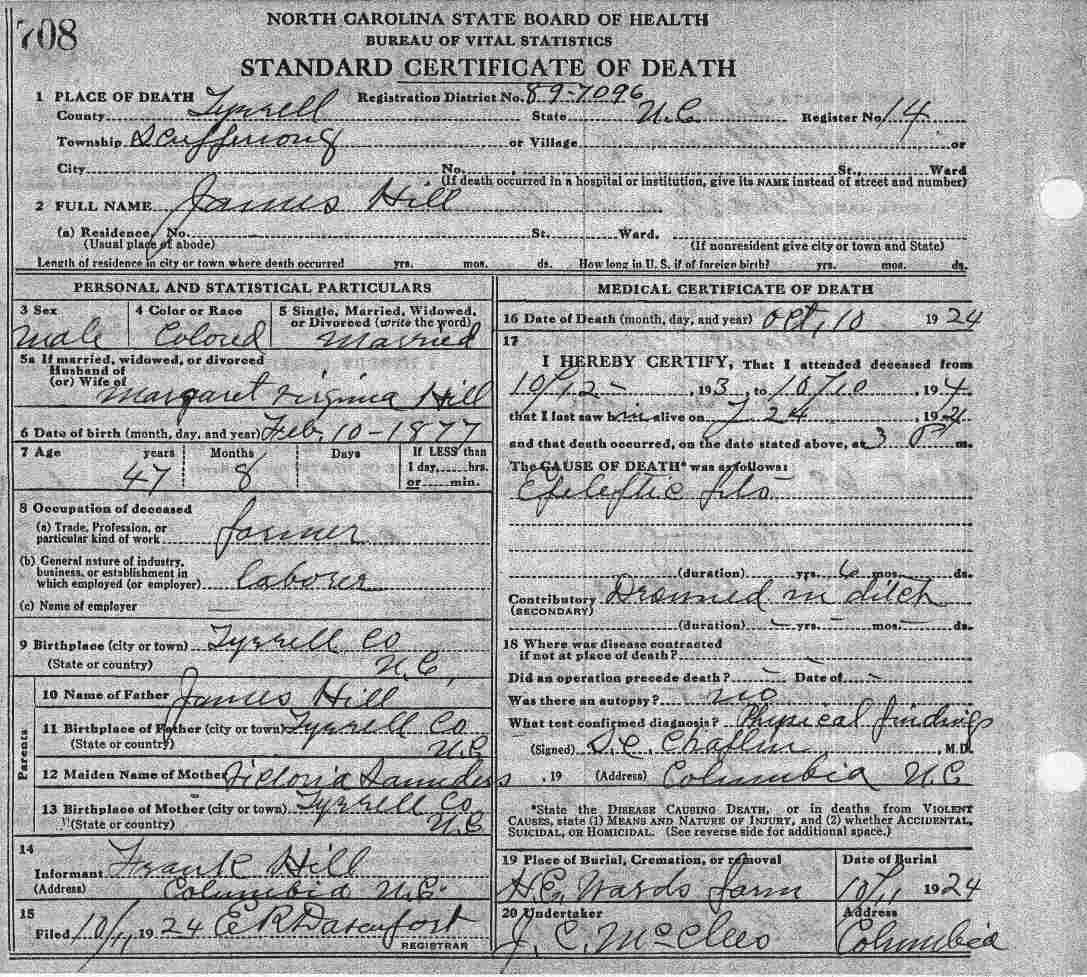 708
NORTH CAROLINA STATE BOARD OF HEALTH
BUREAU OF VITAL STATISTICS
STANDARD CERTIFICATE OF DEATH
1 PLACE OF DEATH Registration District No. 89-7096
County Tyrrell State N.C. Register No. 14
Township Scuppernong or Village or
City No. St., Ward
(If death occurred in a hospital or institution, give its NAME instead of street and number)
2 FULL NAME James Hill
(a) Residence, No. St. Ward.
(Usual place of abode) (If nonresident give city or town and State)
Length of residence in city or town where death occurred yrs. mos. ds. How long in U. S. if of foreign birth? yrs. mos. ds.
PERSONAL AND STATISTICAL PARTICULARS
3 Sex 4 Color or Race 5 Single, Married, Widowed,
or Divorced (write the word)
Male Colored Married
5a If married, widowed, or divorced
Husband of
(or) Wife of Margaret Virginia Hill
6 Date of birth (month, day, and year) Feb. 10-1877
7 Age years Months Days If LESS than
1 day, hrs.
or min.
47 8
8 Occupation of deceased
(a) Trade, Profession, or
particular kind of work farmer
(b) General nature of industry,
business, or establishment in
which employed (or employer) laborer
(c) Name of employer
9 Birthplace (city or town) Tyrrell Co
(State or country) N.C.
Parents
10 Name of Father James Hill
11 Birthplace of Father (city or town) Tyrrell Co
(State or country) N.C
12 Maiden Name of Mother Victoria Saunders
13 Birthplace of Mother (city or town) Tyrrell Co
(State or country) N.C
14
Informant Frank Hill
(Address) Columbia N.C.
15
Filed 10/11 1924 E R Davenport
REGISTRAR
MEDICAL CERTIFICATE OF DEATH
16 Date of Death (month, day, and year) Oct, 10 1924
17
I HEREBY CERTIFY, That I attended deceased from
193, to 10/10, 194
that I last saw him alive on 7 24, 1924
and that death occurred, on the date stated above, at 3 P m.
The CAUSE OF DEATH* was as follows:
Epileptic fits
(duration) yrs. 6 mos. ds.
Contributory Drowned in ditch
(SECONDARY)
(duration) yrs. mos. ds.
18 Where was disease contracted
if not at place of death?
Did an operation precede death? Date of
Was there an autopsy? no
What test confirmed diagnosis? Physical findings
(Signed) Chaplin, M.D.
, 19 (Address) Columbia N.C
*State the DISEASE CAUSING DEATH, or in deaths from VIOLENT
CAUSES, state (1) MEANS AND NATURE OF INJURY, and (2) whether ACCIDENTAL,
SUICIDAL, OR HOMICIDAL. (See reverse side for additional space.)
19 Place of Burial, Cremation, or removal Date of Burial
Wards farm 10/11 1924
20 Undertaker Address
J. C. McClees Columbia